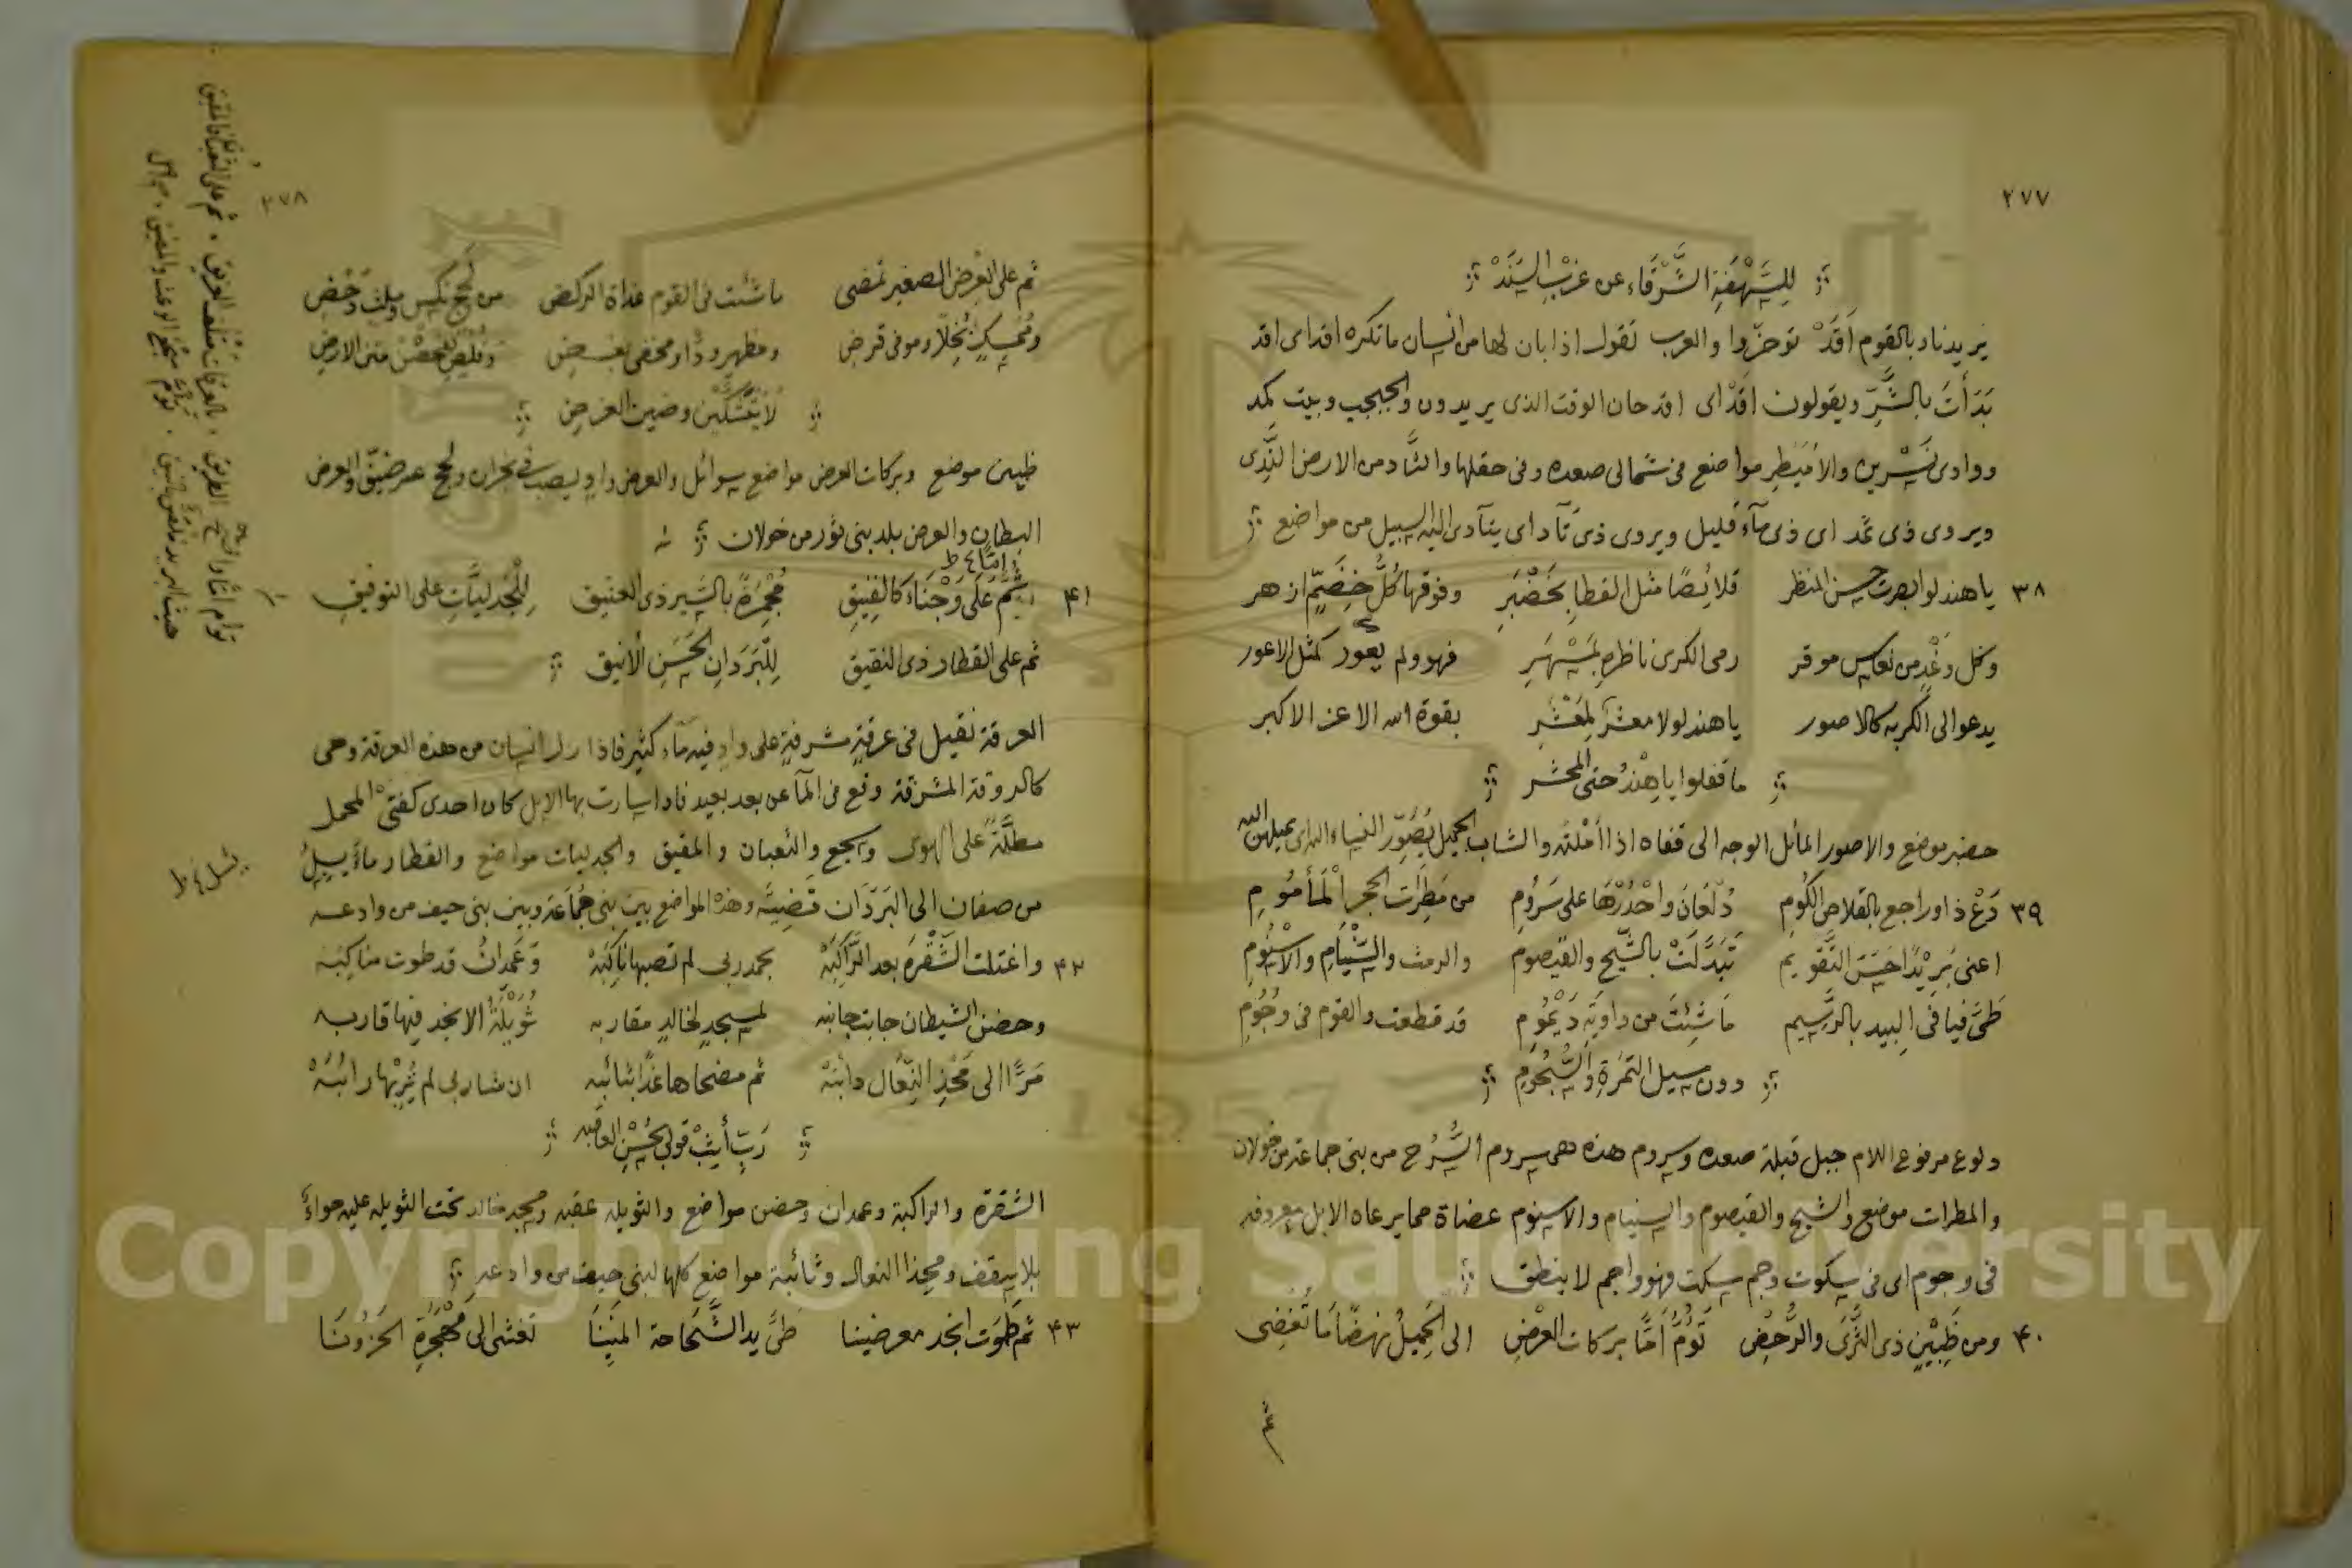 ٢٧٧
للسهفة الشرقاء عن غرب السند
يريد ناد بالقوم أقد توحزوا والعرب تقول اذا بان لها من انسان ما تكره اقداى اقد
بدأت بالشر ويقولون اقداى اقد حان الوقت الذى يريدون والجبجب وبيت نمد
ووادى نسرين والاميطر مواضع فى شمالى صعده وفى حقلها والثاد من الارض الندى
ويروى ذى ثمد اى ذى مآء قليل ويروى ذى تآد اى يتآدى اليه السبيل من مواضع
٣٨ يا هند لو ابصرت حسن المنظر قلائصا مثل القطا بخضبر وفوقها كل خضم ازهر
وكل وغد من نعاس موقر رمى الكرى ناظره بمسهر فهو ولم يعور كمثل الاعور
يدعو الى الكربه كالاصور يا هند لولا معشر لمعشر بقوة الله الاعز الاكبر
ما قفلوا يا هند حتى المحشر
خضبر موضع والاصور المائل الوجه الى قفاه اذا أملته والشاب الجميل يصور النساء الىراى يميلهن اليه
٣٩ دع ذا وراجع بالقلاص الكوم دلعان واحدرها على سروم من مطرات الحجر المأموم
اعنى بريدا حسن التقويم تبدلت بالشيح والقيصوم والرمث والشيام والاسنوم
طى فيافى البيد بالرسيم ما شئت من داوية ديموم قد قطعت والقوم فى وجوم
دون سيل الثمرة والسجوم
دلوع مرفوع اللام جبل قبلة صعده وسروم هذه هى سروم السرح من بنى جماعة من خولان
والمطرات موضع والشيح والقيصوم والسيام والاسنوم عضاة مما يرعاه الابل معروفه
فى وجوم اى فى سكوت وجم سكت فهو واجم لا ينطق
٤٠ ومن ظبين ذى الثرى والرحض تؤم أما بركات العرض الى الجميل نهضا ما تغضى
ثم
٢٧٨
ثم على العرض الصغير تمضى ما شئت فى القوم غداة الركض من لحج نكس وملث وخض
وممسك بخلا وموفى قرض ومظهر ودا ومخفى بغض
لا تشكين وضين الغرض
ظبين موضع وبركات العرض مواضع سوائل والعرض واد يصب فى نجران ولحج عرضيق والعرض
البطان والعرض بلد بنى ثور من خولان
امّا ٤ ط
٤١ ثم على وجناء كالفنيق مجمزة بالسير ذى العنيق للجدليات على التوفيق
ثم على القطار ذى النقيق للبردان الحسن الأنيق
العرقة نقيل فى عرقة مشرفة على واد فيه مآء كثير فاذا زل انسان من هذه العرقة وهى
كالدروقة المشرقة وقع فى المآ عن بعد بعيد فاذا سارت بها الابل كان احدى كفتى المحمل
مطلة على الهوى وسجع والثعبان والمقيق والجدليات مواضع والقطار مآء يسيل
من صفان الى البردان قضيته وهذه المواضع بين بنى جماعة وبين بنى حيف من وادعه
٤٢ واغتلت الشقرة بعد الراكبه بحمد ربى لم تصبها ناكبه وعمدان قد طوت مناكبه
وحضن الشيطان جابت جانبه لمسجد لخالد مقاربه ثويلة الا نجد فيها قاربه
مرا الى محذ النعال دائبه ثم مضحاها غدا ثنائبه ان شا ربى لم يربها رائبه
رب أثب قولى بحسن العاقبه
الشقرة والراكبة وعمدان وحضن مواضع والثويله عقبه ومسجد خالد تحت الثويله عليه حوآء
بلا سقف ومحذا النعال وثائبة مواضع كلها لبنى حيف من وادعه
٤٣ ثم طوت انجد معرضينا طى يد الشحاحة المنينا تغشى الى مهجرة الحزونا
يسل ٤ ط
توام امّا الطريق بالعرقات متلف الغريق ثم على الثعبان فالمقيق
Copyright © King Saud University
1957